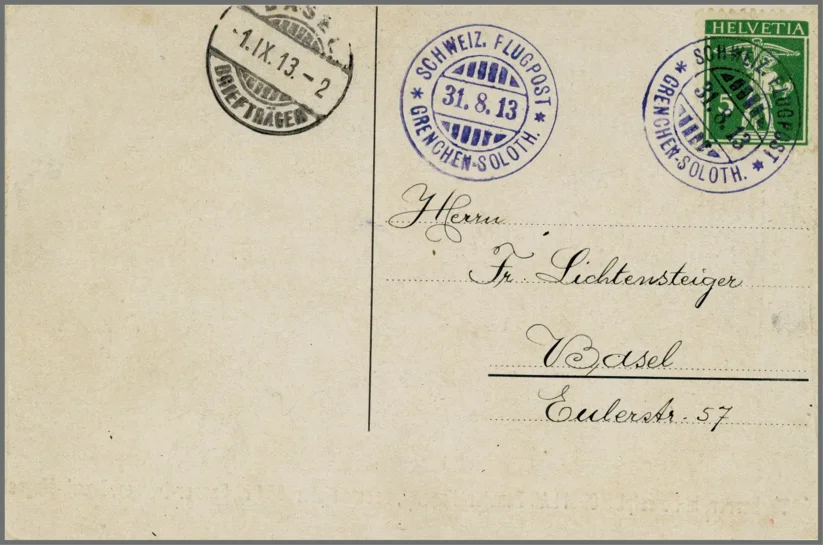 BASEL
-1.IX.13.-2
BRIEFTRÄGER
SCHWEIZ. FLUGPOST
31.8.13
* GRENCHEN-SOLOTH. *
HELVETIA
5
SCHWEIZ. FLUGPOST
31.8.13
* GRENCHEN-SOLOTH. *
Herrn
Fr. Lichtensteiger
Basel
Eulerstr. 57